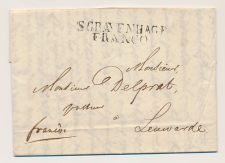 'SGRAVENHAGE
FRANCO
Monsieur,
Monsieur Delprat,
pasteur
à
franco
Leuwarde